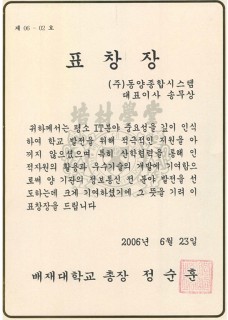 제 06 - 02 호
표 창 장
(주)동양종합시스템
대표이사 송무상
귀하께서는 평소 IT분야 중요성을 깊이 인식
하여 학교 발전을 위해 적극적인 지원을 아
끼지 않으셨으며 특히 산학협력을 통해 인
적자원의 활용과 우수기술의 개발에 기여함으
로써 양 기관의 정보통신 전 분야 발전을 선
도하는데 크게 기여하셨기에 그 뜻을 기려 이
표창장을 드립니다.
2006년 6월 23일
배재대학교 총장 정 순 훈
培材學堂